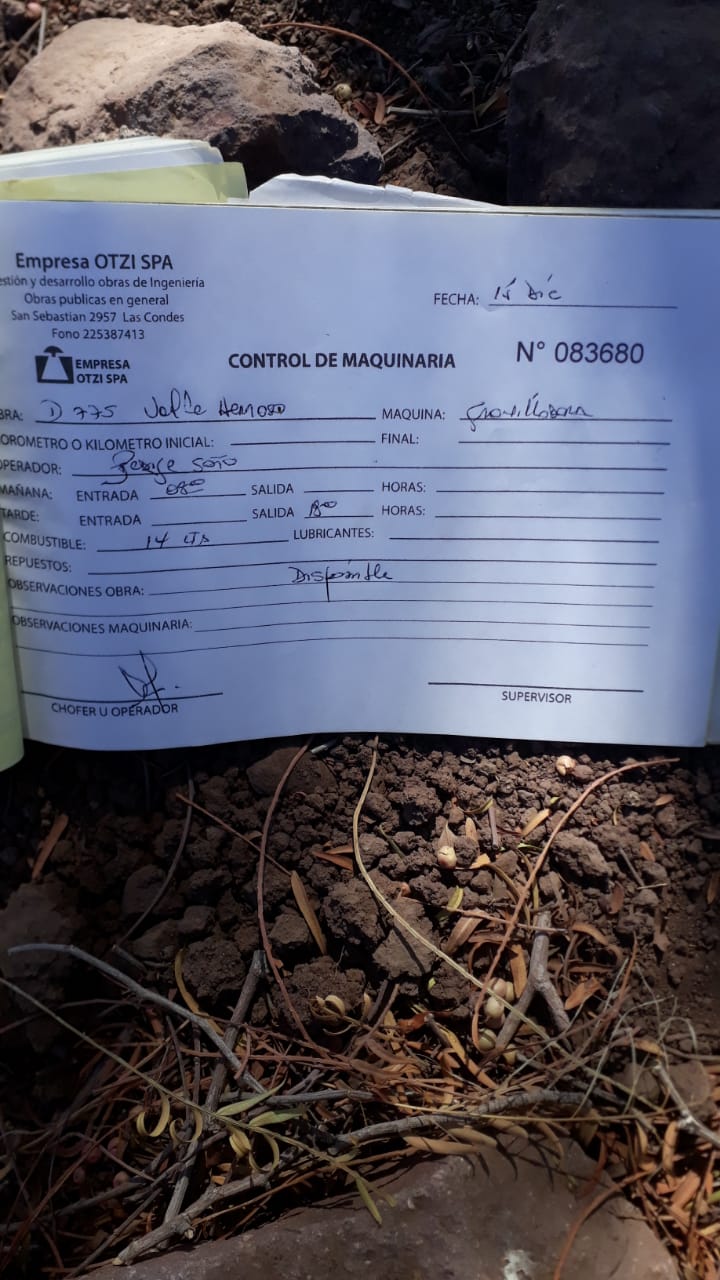 Empresa OTZI SPA
estión y desarrollo obras de Ingeniería
Obras publicas en general
San Sebastian 2957 Las Condes
Fono 225387413
EMPRESA
OTZI SPA
CONTROL DE MAQUINARIA
FECHA: 15 Dic
N° 083680
BRA: D 775 Valle Hermoso MAQUINA: Gravilladora
OROMETRO O KILOMETRO INICIAL: FINAL:
OPERADOR: Soto
MAÑANA: ENTRADA 0800 SALIDA HORAS:
TARDE: ENTRADA SALIDA 1800 HORAS:
COMBUSTIBLE: 14 LTS LUBRICANTES:
REPUESTOS:
OBSERVACIONES OBRA: Disponible
OBSERVACIONES MAQUINARIA:
CHOFER U OPERADOR SUPERVISOR